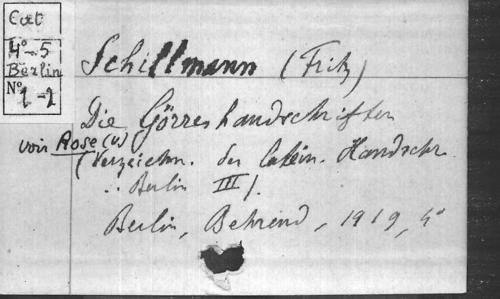 Cat
4°-5
Berlin
N° 1-2
Schillmann (Fritz)
Die Görreshandschriften
voir Rose (V.)
(Verzeichn. der latein. Handschr.
Berlin III).
Berlin, Behrend, 1919, 4°